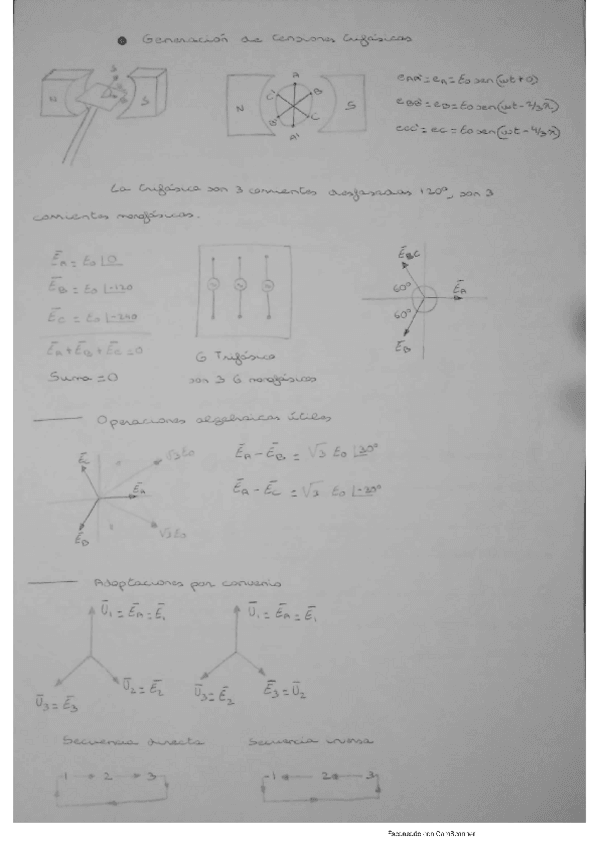 • Generación de tensiones trifásicas
N S S
N S A B C A' B' C'
eAA' = eA = Eo sen(wt+0)
eBB' = eB = Eo sen(wt - 2/3π)
eCC' = eC = Eo sen(wt - 4/3π)
La trifásica son 3 corrientes desfasadas 120°, son 3
corrientes monofásicas.
ĒA = Eo |0
ĒB = Eo |-120
ĒC = Eo |-240
ĒA + ĒB + ĒC = 0
Suma = 0
G Trifásico
son 3 G monofásicos
60° ĒA
60°
ĒB
Operaciones algebraicas útiles
ĒC √3 Eo
ĒA
ĒB √3 Eo
ĒA - ĒB = √3 Eo |30°
ĒA - ĒC = √3 Eo |-30°
Adaptaciones por convenio
Ū1 = ĒA = Ē1
Ū3 = Ē3 Ū2 = Ē2
Ū1 = ĒA = Ē1
Ū3 = Ē2 Ē3 = Ū2
Secuencia directa Secuencia inversa
1 → 2 → 3 1 ← 2 ← 3
Escaneado con CamScanner